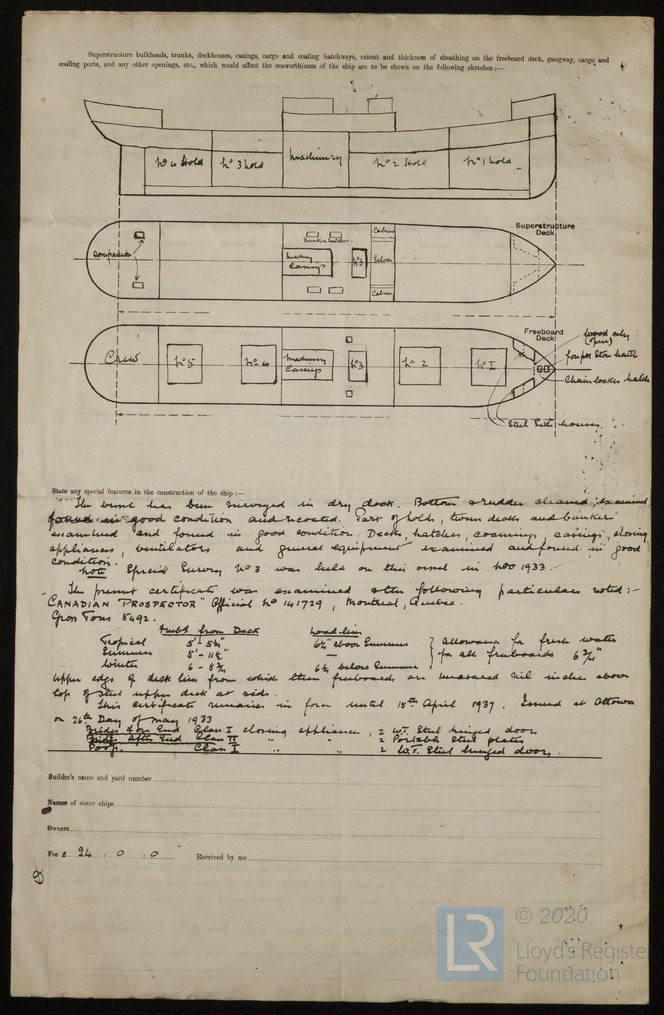 Superstructure bulkheads, trunks, deckhouses, casings, cargo and coaling hatchways, extent and thickness of sheathing on the freeboard deck, gangway, cargo and
coaling ports, and any other openings, etc., which would affect the seaworthiness of the ship are to be shewn on the following sketches:—
No 4 Hold
No 3 hold
Machinery
No 2 Hold
No 1 hold
Superstructure
Deck
Companion
Bunker hatches
Machy
Casings
No 3
Cabins
Saloon
Cabins
Freeboard
Deck
Crew
No 5
No 4
Machinery
Casings
No 3
No 2
No I
Chain locker hatch
Steel houses
State any special features in the construction of the ship:—
The vessel has been surveyed in dry dock. Bottom & rudder cleaned, examined
found in good condition and recoated. Part of holds, tween decks and bunker
examined and found in good condition. Decks, hatches, coamings, casings, closing
appliances, ventilators and general equipment examined and found in good
condition.
Note Special Survey No 3 was held on this vessel in Nov 1933.
The present certificate was examined & the following particulars noted:—
"CANADIAN PROSPECTOR" Official No 141729, Montreal, Quebec.
Gross Tons 5492.
Freebds from Deck Load-line
Tropical 5'- 5¼" 6¼" above Summer
Summer 5'- 11½" —
Winter 6 - 5¾ 6¼ below Summer
allowance for fresh water
for all freeboards 6¾"
Upper edge of deck line from which these freeboards are measured Nil inches above
top of steel upper deck at side.
This certificate remains in force until 18th April 1937. Issued at Ottawa
on 26th Day of May 1933
Bridge Fore End Class I closing appliances, 2 W.T. Steel hinged doors
Bridge After End Class II " " 2 Portable Steel plates
Poop. Class I " " 2 W.T. Steel hinged doors.
Builder's name and yard number
Names of sister ships
Owners
Fee £ 24 : 0 : 0 Received by me
LR
© 2020
Lloyd's Register
Foundation